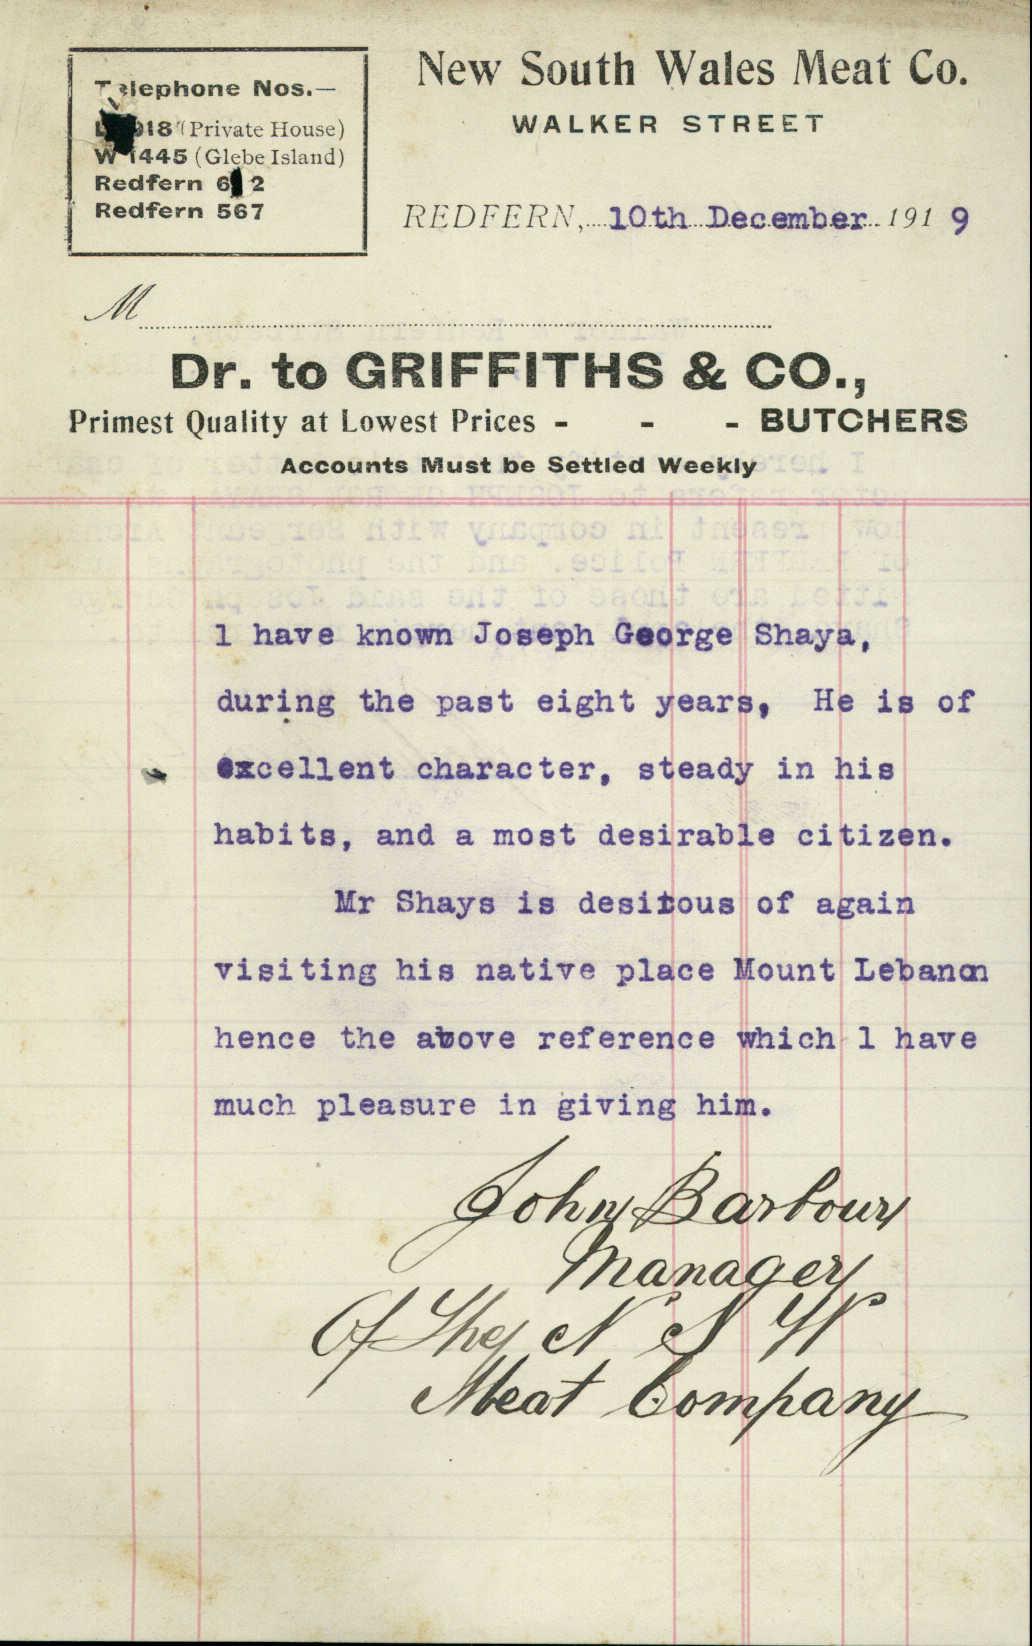 New South Wales Meat Co.
WALKER STREET
Telephone Nos.—
918 (Private House)
W 1445 (Glebe Island)
Redfern 6 2
Redfern 567
REDFERN, 10th December 1919
M
Dr. to GRIFFITHS & CO.,
Primest Quality at Lowest Prices - - - BUTCHERS
Accounts Must be Settled Weekly
l have known Joseph George Shaya,
during the past eight years, He is of
excellent character, steady in his
habits, and a most desirable citizen.
Mr Shays is desirous of again
visiting his native place Mount Lebanon
hence the above reference which l have
much pleasure in giving him.
John Barbour
Manager
Of The N S W
Meat Company